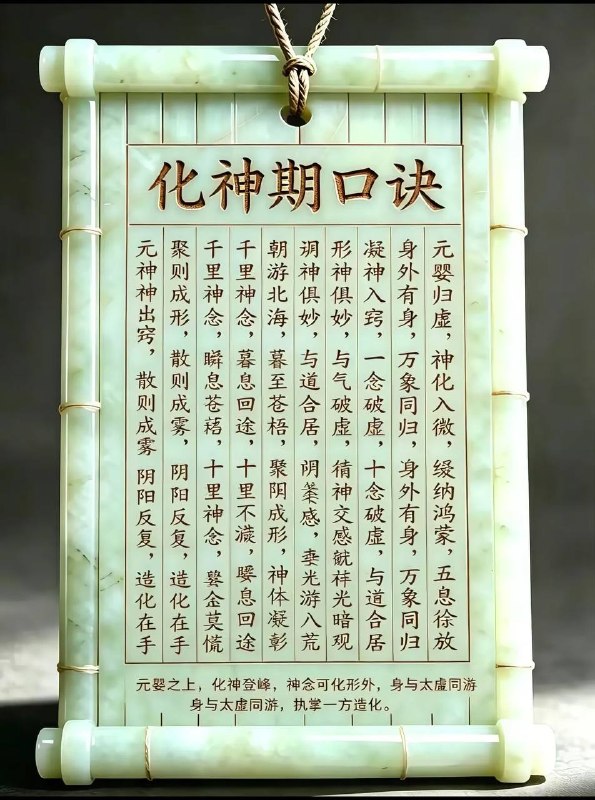 化神期口诀
元婴归虚，神化入微，纳鸿蒙，五息徐放
身外有身，万象同归，身外有身，万象同归
凝神入窍，一念破虚，十念破虚，与道合居
形神俱妙，与气破虚，神交感光暗观
神俱妙，与道合居，阴感，光游八荒
朝游北海，暮至苍梧，聚阴成形，神体凝彰
千里神念，暮息回途，十里不，息回途
千里神念，瞬息苍，十里神念，金莫慌
聚则成形，散则成雾，阴阳反复，造化在手
元神神出窍，散则成雾 阴阳反复，造化在手
元婴之上，化神登峰，神念可化形外，身与太虚同游
身与太虚同游，执掌一方造化。